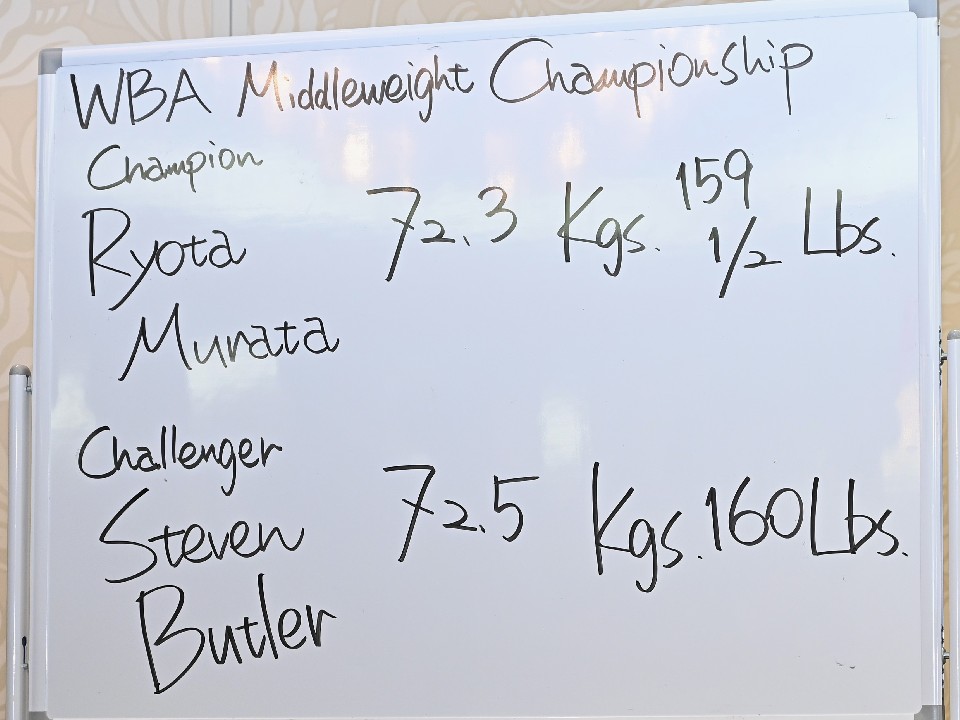 WBA Middleweight Championship
Champion
Ryota 72.3 Kgs. 159 1/2 Lbs.
Murata
Challenger
Steven 72.5 Kgs. 160 Lbs.
Butler